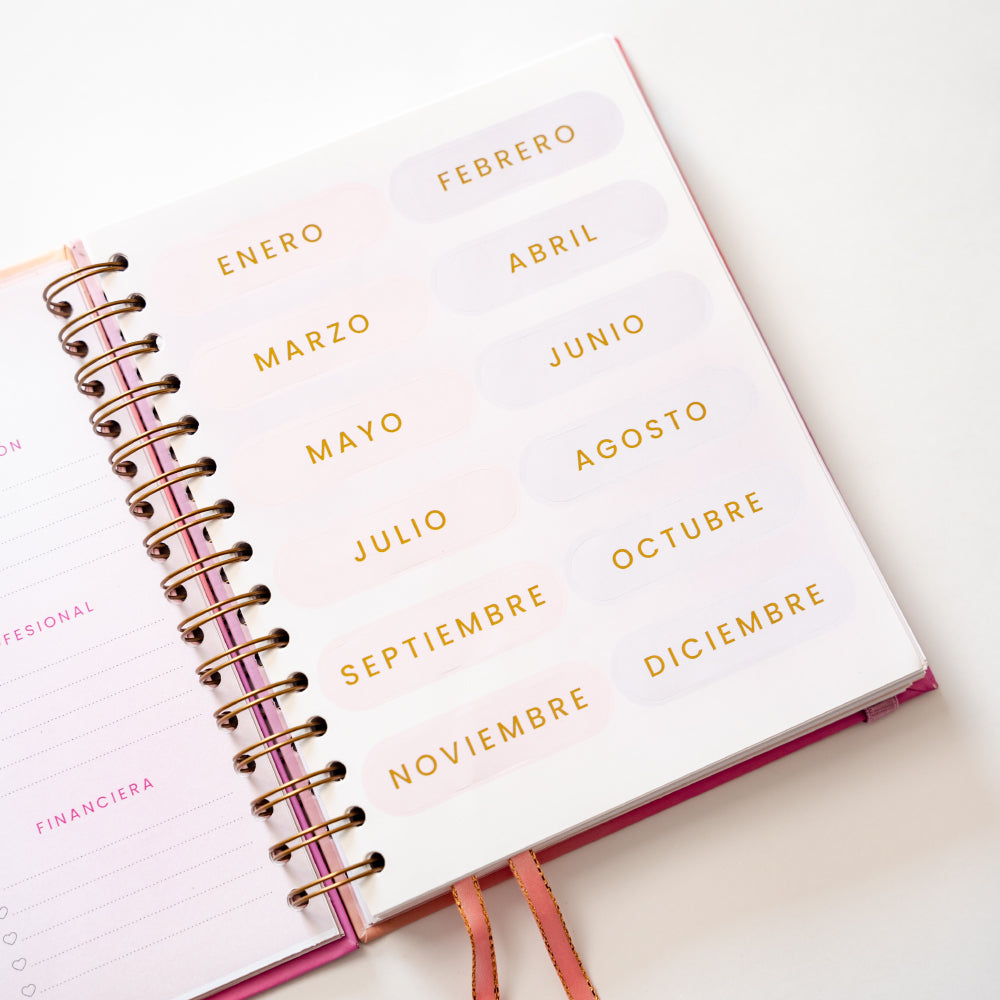 FINANCIERA
ENERO
FEBRERO
MARZO
ABRIL
MAYO
JUNIO
JULIO
AGOSTO
SEPTIEMBRE
OCTUBRE
NOVIEMBRE
DICIEMBRE